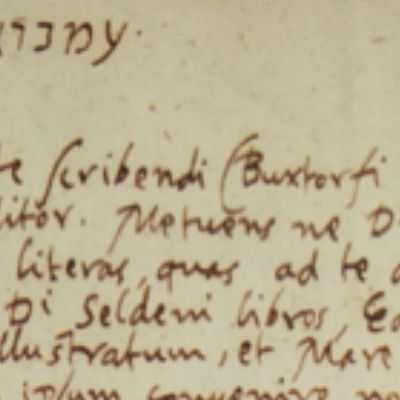 te scribendi (Buxtorfi
litor. Metuens ne D
literas, quas ad te
Di Seldeni libros, Ea
llustratum, et Mare
ipsum convenire no